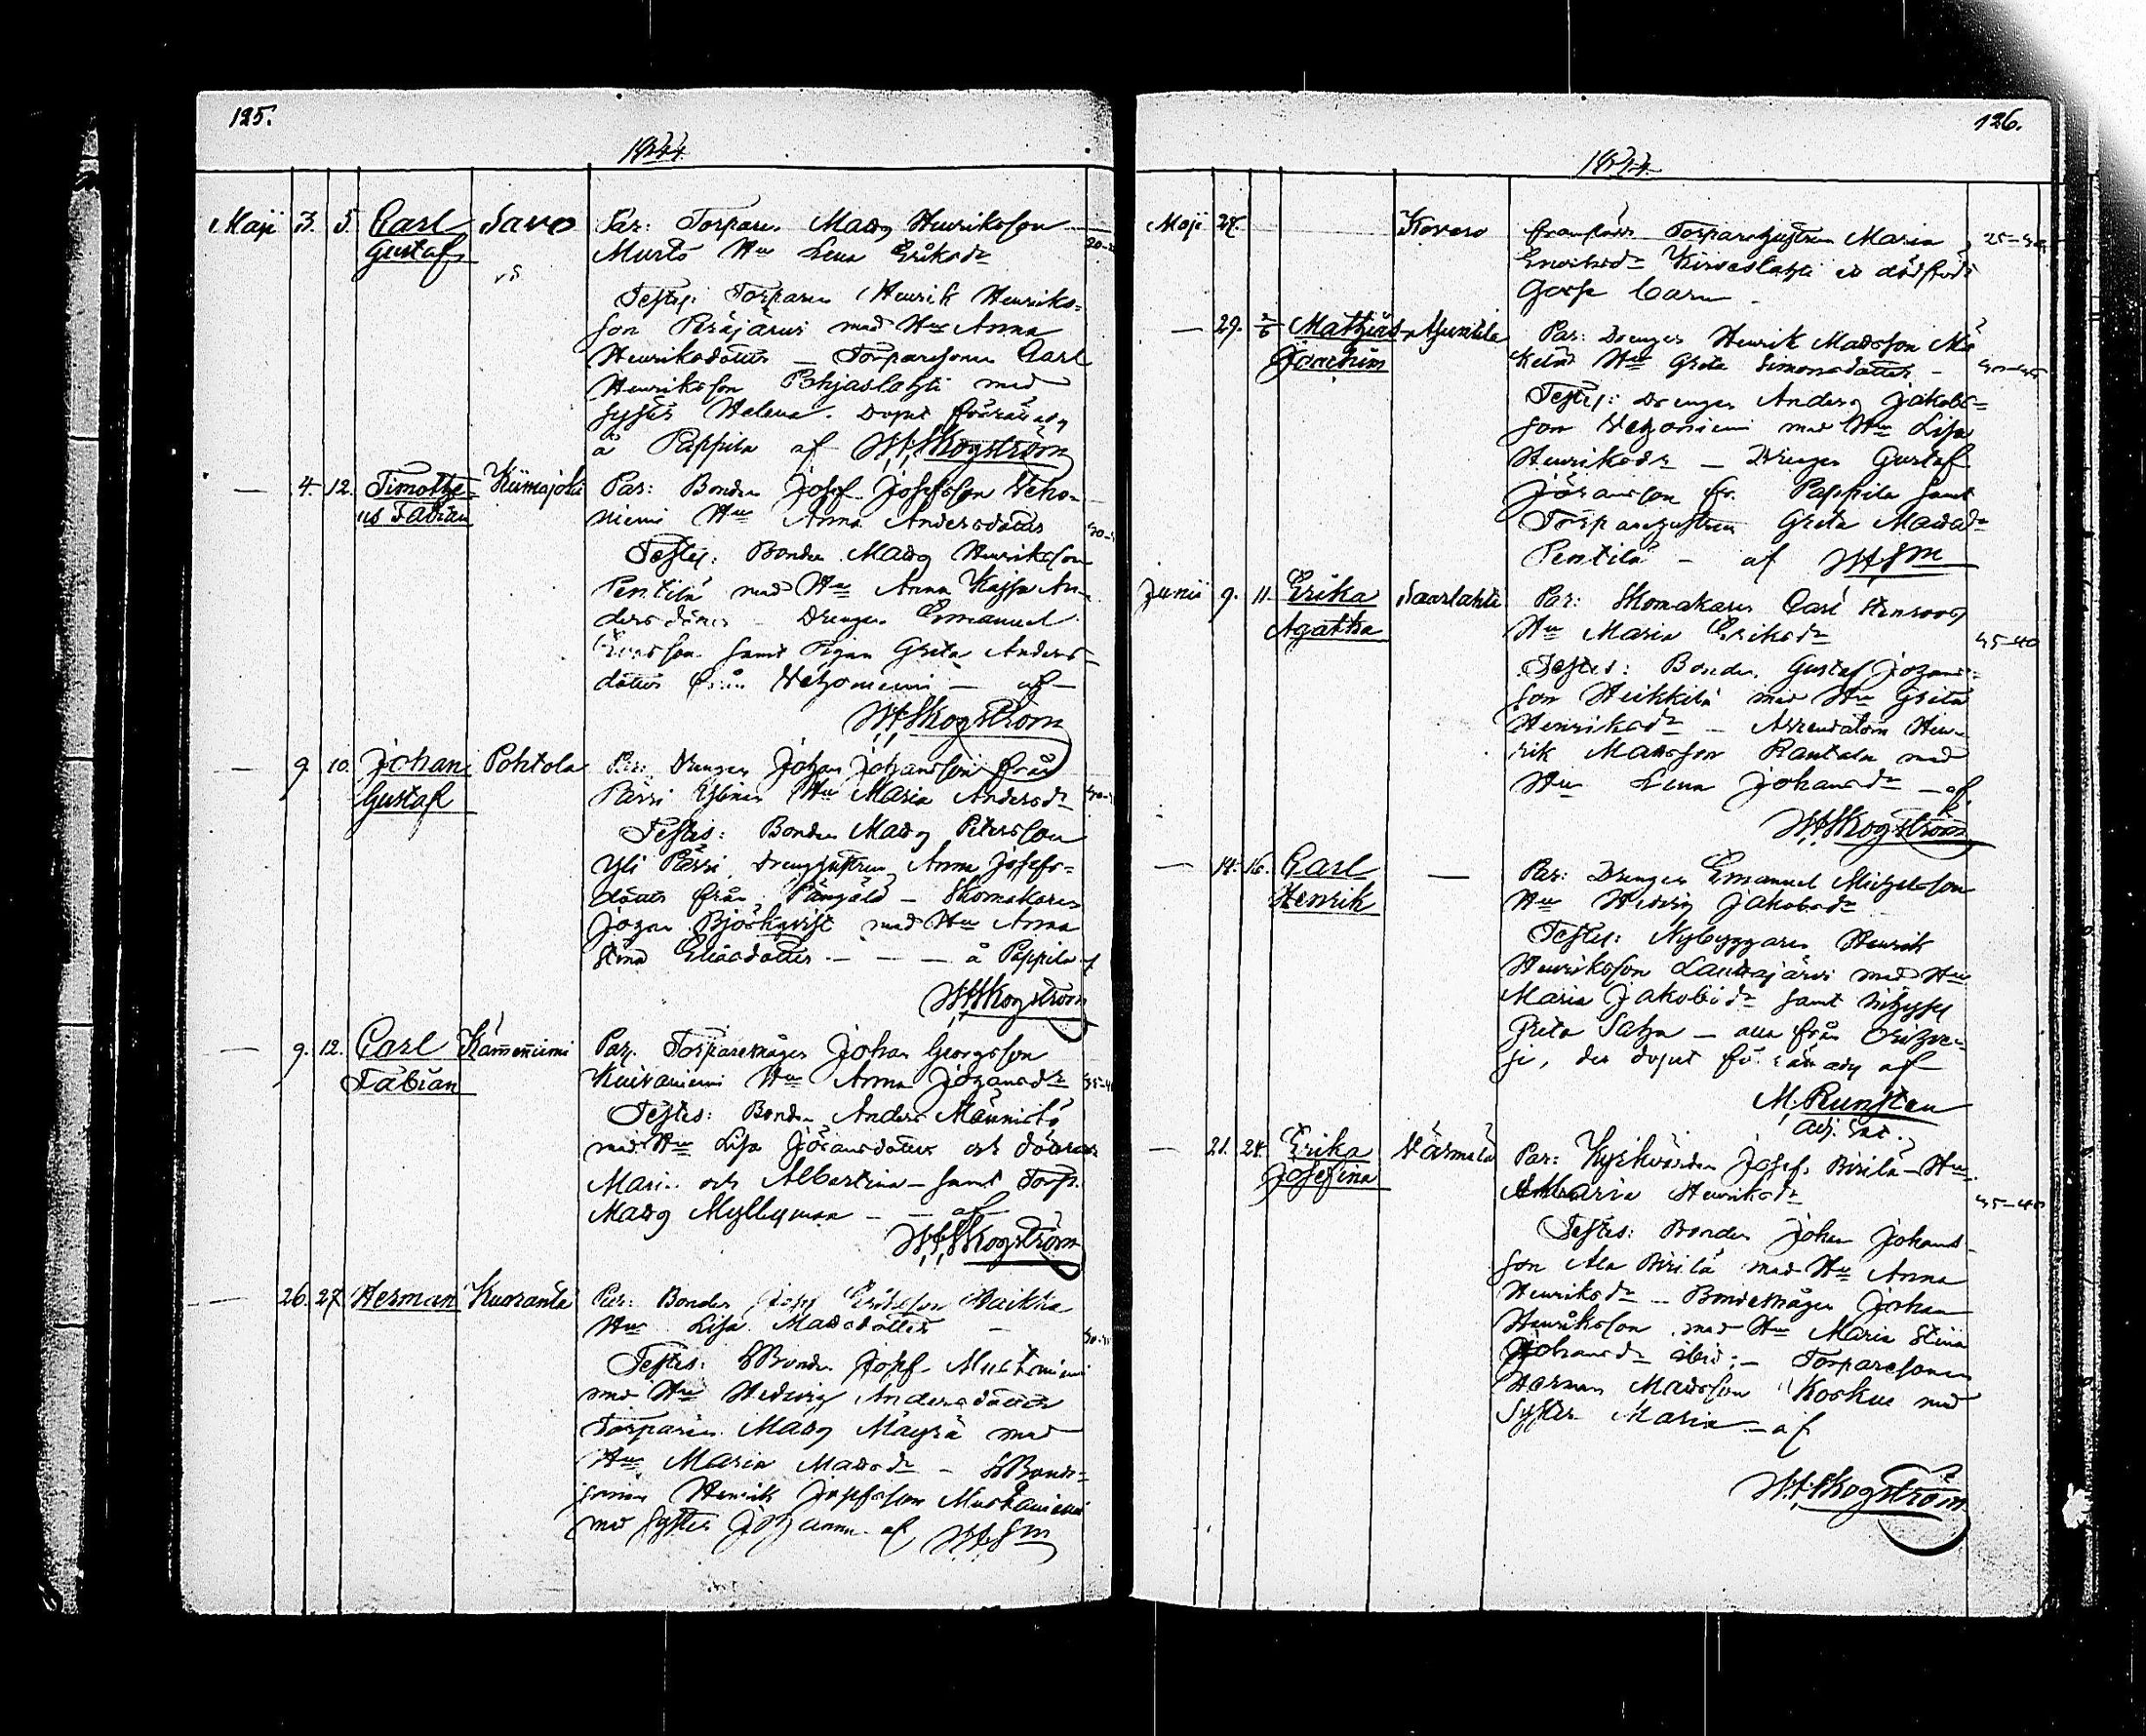 125.
1844
Maji 3. 5. Carl Savo Par: Torparen Mads Henriksson 20-
Gustaf Murto Hu Lena Eriksdr
Testes: Torparen Henrik Henriks-
son Peräjärvi med Hu Anna
Henriksdotter — Torparesonen Carl
Henriksson Pohjaslahti med
syster Helena. Döpt
å Pappila af Skogström
— 4. 12. Timothe- Kiimajoki Par: Bonden Josef Josefsson Veho-
us Fabian niemi Hu Anna Andersdotter 30-
Testes: Bonden Mads Henriksson
Pentilä med Hu Anna Kajsa An-
ders dotter — Drengen Emanuel
samt Pigan Greta Anders-
dotter från Vehoniemi — af —
Skogström
— 9. 10. Johan Pohtola Par: Drengen Johan Johansson från
Gustaf Pärri Hu Maria Andersdr
Testes: Bonden Mads Petersson
Yli Pärri, Drenghustrun Anna Josefs-
dotter från — Skomakaren
Johan Björkqvist med Hu Anna
Stina Eliasdotter — — — å Pappila af
Skogström
— 9. 12. Carl Kämmeniemi Par: Torparemågen Johan Georgsson
Fabian Kuivaniemi Hu Anna Johansdr 35-4
Testes: Bonden Anders Männistö
med Hu Lisa Jöransdotter och dotter
Maria och Albertina — samt Torp.
Mads Myllymaa — — af —
Skogström
— 26. 27. Herman Kuoranta Par: Bonden Josef Eriksson
Hu Lisa Madsdotter —
Testes: Bonden Josef Mustaniemi
med Hu Hedvig Andersdotter
Torparen Mads Mäyrä med
Hu Maria Madsdr — Bonde-
sonen Henrik Josefsson Mustaniemi
med syster Johanna af
126.
1844
Maji 27. Kovero framfödde Torparehustrun Maria 25-30
Kirveslahti ett dödfödt
Gosse barn —
— 29. 2/6 Mathias Muntila Par: Drengen Henrik Madsson Mä
Joachim kelä Hu Greta Simonsdotter —
Testes: Drengen Anders Jakobs-
son Vehoniemi med Hu Lisa
Henriksdr — Drengen Gustaf
Jöransson fr. Pappila samt
Torparehustrun Greta Madsdr
Pentilä — af
Junii 9. 11. Erika Saarlahti Par: Skomakaren Carl Stenroos
Agatha Hu Maria Eriksdr 35-40
Testes: Bonden Gustaf Johans-
son Heikkilä med Hu Greta
Henriksdr — Arrendatorn Hen-
rik Madsson Rantala med
Hu Lena Johansdr — af
Skogström
— 14. 16. Carl — Par: Drengen Emanuel Michelsson
Henrik Hu Hedvig Jakobsdr
Testes: Nybyggaren Henrik
Henriksson Lauttajärvi med Hu
Maria Jakobsdr samt Inhyses
Greta — alla från Orihve-
si, der döpt af
M. Runsten
adj. Sac.
— 21. 24. Erika Värmälä Par: Kyrkvärden Josef Pirilä — Hu
Josefina Maria Henriksdr 35-40
Testes: Bonden Johan Johans-
son Ala Pirilä med Hu Anna
Henriksdr — Bondemågen Johan
Henriksson med Hu Maria Stina
Johansdr ibid: — Torparesonen
Herman Madsson Koskue med
Syster Maria — af
Skogström